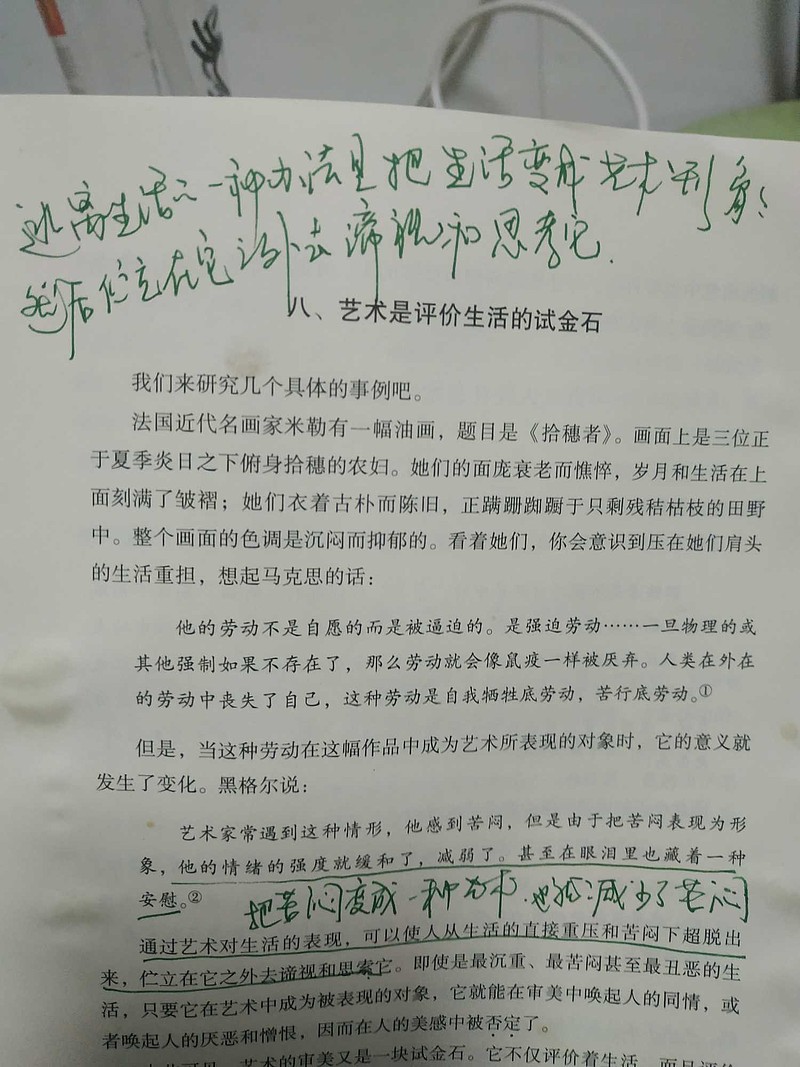 逃离生活的一种办法是把生活变成艺术形象;
然后伫立在它之外去谛视和思考它.
八、艺术是评价生活的试金石
我们来研究几个具体的事例吧。
法国近代名画家米勒有一幅油画，题目是《拾穗者》。画面上是三位正
于夏季炎日之下俯身拾穗的农妇。她们的面庞衰老而憔悴，岁月和生活在上
面刻满了皱褶；她们衣着古朴而陈旧，正蹒跚踟蹰于只剩残秸枯枝的田野
中。整个画面的色调是沉闷而抑郁的。看着她们，你会意识到压在她们肩头
的生活重担，想起马克思的话：
他的劳动不是自愿的而是被逼迫的。是强迫劳动……一旦物理的或
其他强制如果不存在了，那么劳动就会像鼠疫一样被厌弃。人类在外在
的劳动中丧失了自己，这种劳动是自我牺牲底劳动，苦行底劳动。①
但是，当这种劳动在这幅作品中成为艺术所表现的对象时，它的意义就
发生了变化。黑格尔说：
艺术家常遇到这种情形，他感到苦闷，但是由于把苦闷表现为形
象，他的情绪的强度就缓和了，减弱了。甚至在眼泪里也藏着一种
安慰。②
把苦闷变成一种艺术，也就减少了苦闷
通过艺术对生活的表现，可以使人从生活的直接重压和苦闷下超脱出
来，伫立在它之外去谛视和思索它。即使是最沉重、最苦闷甚至最丑恶的生
活，只要它在艺术中成为被表现的对象，它就能在审美中唤起人的同情，或
者唤起人的厌恶和憎恨，因而在人的美感中被否定了。
由此可见，艺术的审美又是一块试金石。它不仅评价着生活，而且评价